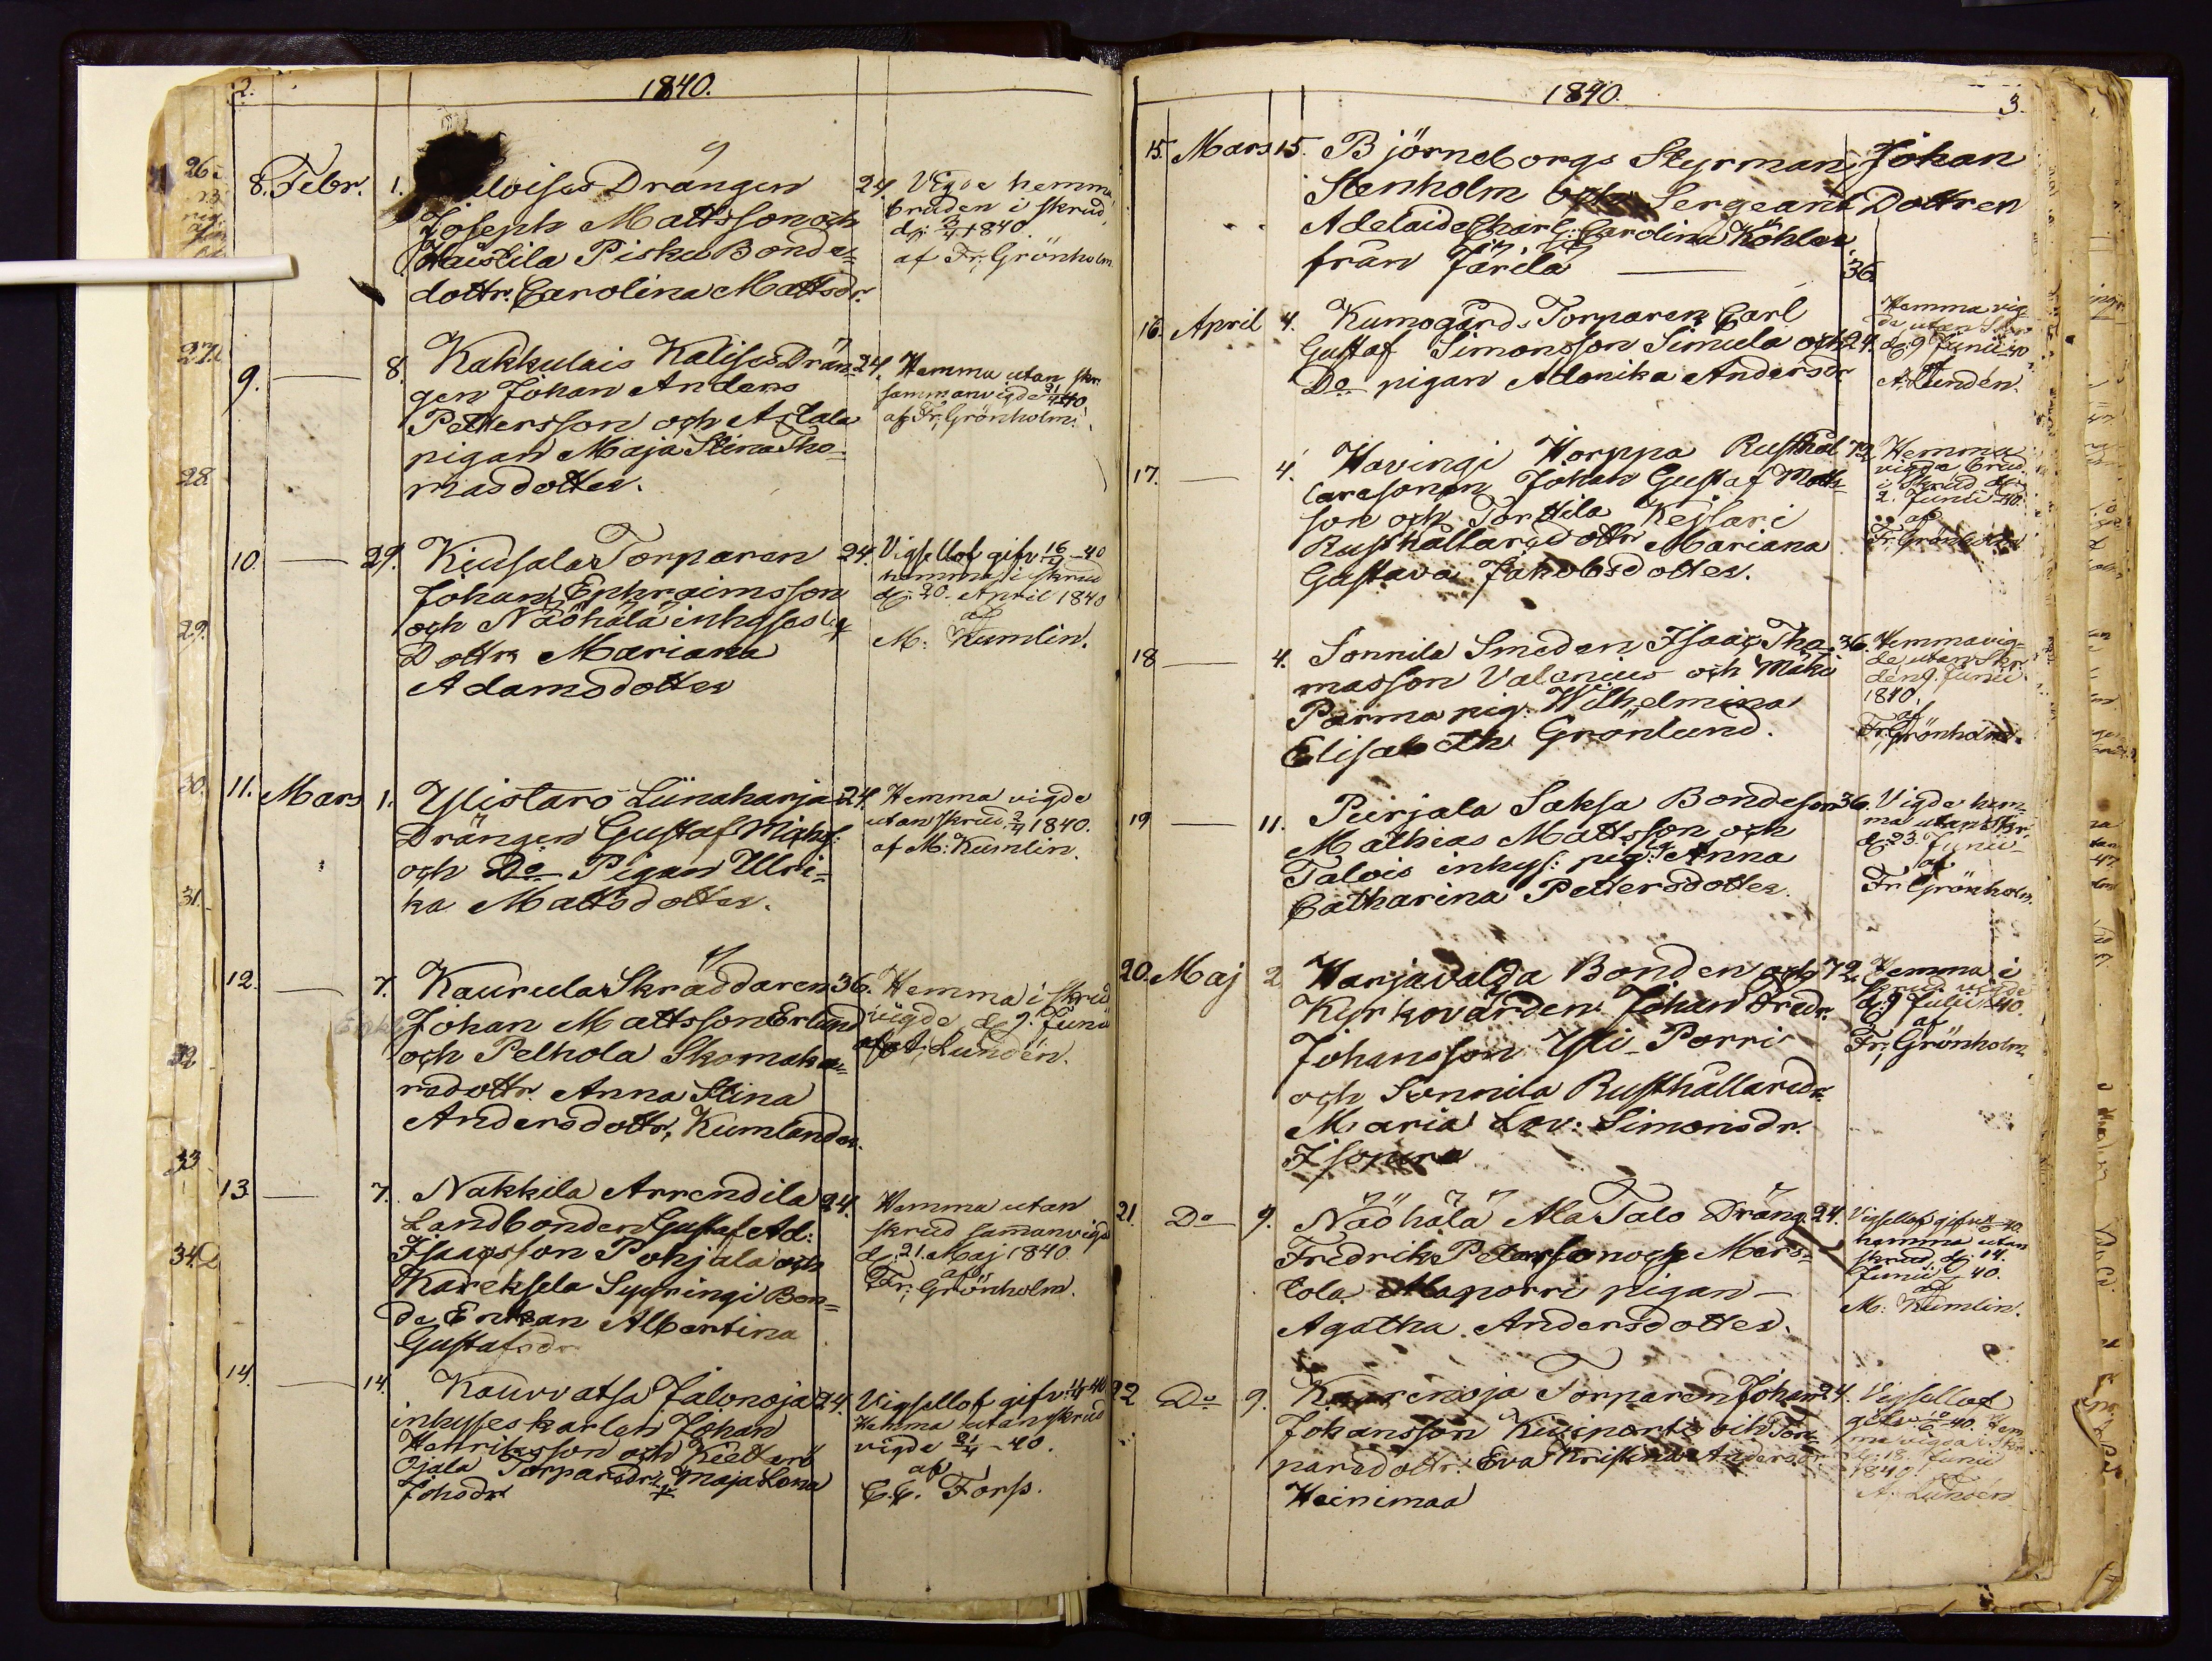 2.
1840.
8. Febr. 1. Drängen 24. Vigde hemma
Joseph Mattsson och bruden i skrud
Haistila Pisku Bonde= d. 3/4 1840.
dottr. Carolina Mattsdr. af Fr. Grönholm
9. — 8. Kakkulais Kalises Drän= 24. Hemma utan skr.
gen Johan Anders sammanvigde 21/4 40
Pettersson och Attala af Fr. Grönholm.
pigan Maja Stina Tho=
masdotter.
10. — 29. Kiusala Torparen 24. Vigsellof gifv 16/4 -40
Johan Ephraimsson hemma i skrud
och Näöhälä inhyses d. 20. April 1840
Dottr. Mariana af
Adamsdotter M. Kumlin.
11. Mars 1. Ylistaro Liinaharja 24. Hemma vigde
Drängen Gustaf Mich: utan skrud 2/4 1840.
och Do Pigan Ulri= af M: Kumlin.
ka Mattsdotter.
12. — 7. Kaurula Skräddaren 36. Hemma i skrud
Johan Mattsson Erlund vigde d. 9. Junii
och Pelhola Skomaka= af A. Lundén.
rsdottr. Anna Stina
Andersdottr. Kumlander.
13. — 7. Nakkila Arrendila 24. Hemma utan
Landbonden Gustaf Ad: skrud samanvigd
Isaacsson Pohjala och d. 21. Maj 1840.
Kareksela Sypringi Bon= af
de Enkan Albertina Fr. Grönholm.
Gustafsdr
14. — 14. Kauvatsa Jalonoja 24. Vigsellof gifv
inhyses karlen Johan Hemma utan skrud
Henriksson och Kiettarö vigde 21/4 - 40.
Ojala Torparedr. Maja Lena af
Johsdr C. G. Forss.
1840.
3.
15. Mars 15. Björneborgs Styrman Johan
Stenholm och Sergeant Dottren
Adelaide Charl: Carolina Köhler
från Järilä — 36.
16. April 4. Kumogårds Torparen Carl Hemma vig
Gustaf Simonsson Simula och 24. de utan skr
Do pigan Adonika Andersdr. d. 9 Junii 40
A. Lundén.
17. — 4. Havingi Horppa Rusthål 72 Hemma
laresonen Johan Gustaf Matts= vigde brud
son och Torttila Kejsari i skrud d.
Rusthållaredottr Mariana 2. Junii -40.
Gustava Jakobsdotter. af
Fr. Grönholm
18 — 4. Sonnila Smeden Isaac Tho= 36. Hemmavig=
masson Valenius och Mäki de utan Skr.
Parma pig: Wilhelmina den 9. Junii
Elisabeth Grönlund. 1840.
af
Fr. Grönholm.
19 — 11. Purjala Saksa Bondeson 36. Vigde hem=
Mathias Mattsson och ma utan Skr.
Talois inhys: pig: Anna d. 23. Junii
Catharina Pettersdotter. af
Fr. Grönholm.
20. Maj 2 Harjavalda Bonden och 72. Hemma i
Kyrkovärden Johan Fredr. skrud vigde
Johansson Yli-Porri d. 9 Julii -40.
och Sonnila Rusthållaredr. af
Maria Lov: Simonsdr. Fr. Grönholm
Isopere
21. Do 9. Näöhälä Ala Talo Dräng. 24. Vigsellof gifv
Fredrik Petersson och Mers= hemma utan
tola Alaporri pigan - skrud d. 14.
Agatha Andersdotter. Junii - 40.
af
M. Kumlin.
22 Do 9. Torparen Johan 24. Vigsellof
Johansson och Tor= gifv. 40. Hem
paredottr. Eva Kristina Andersdr. ma vigda
Heinimaa d. 18. Junii
1840. af
A. Lundén